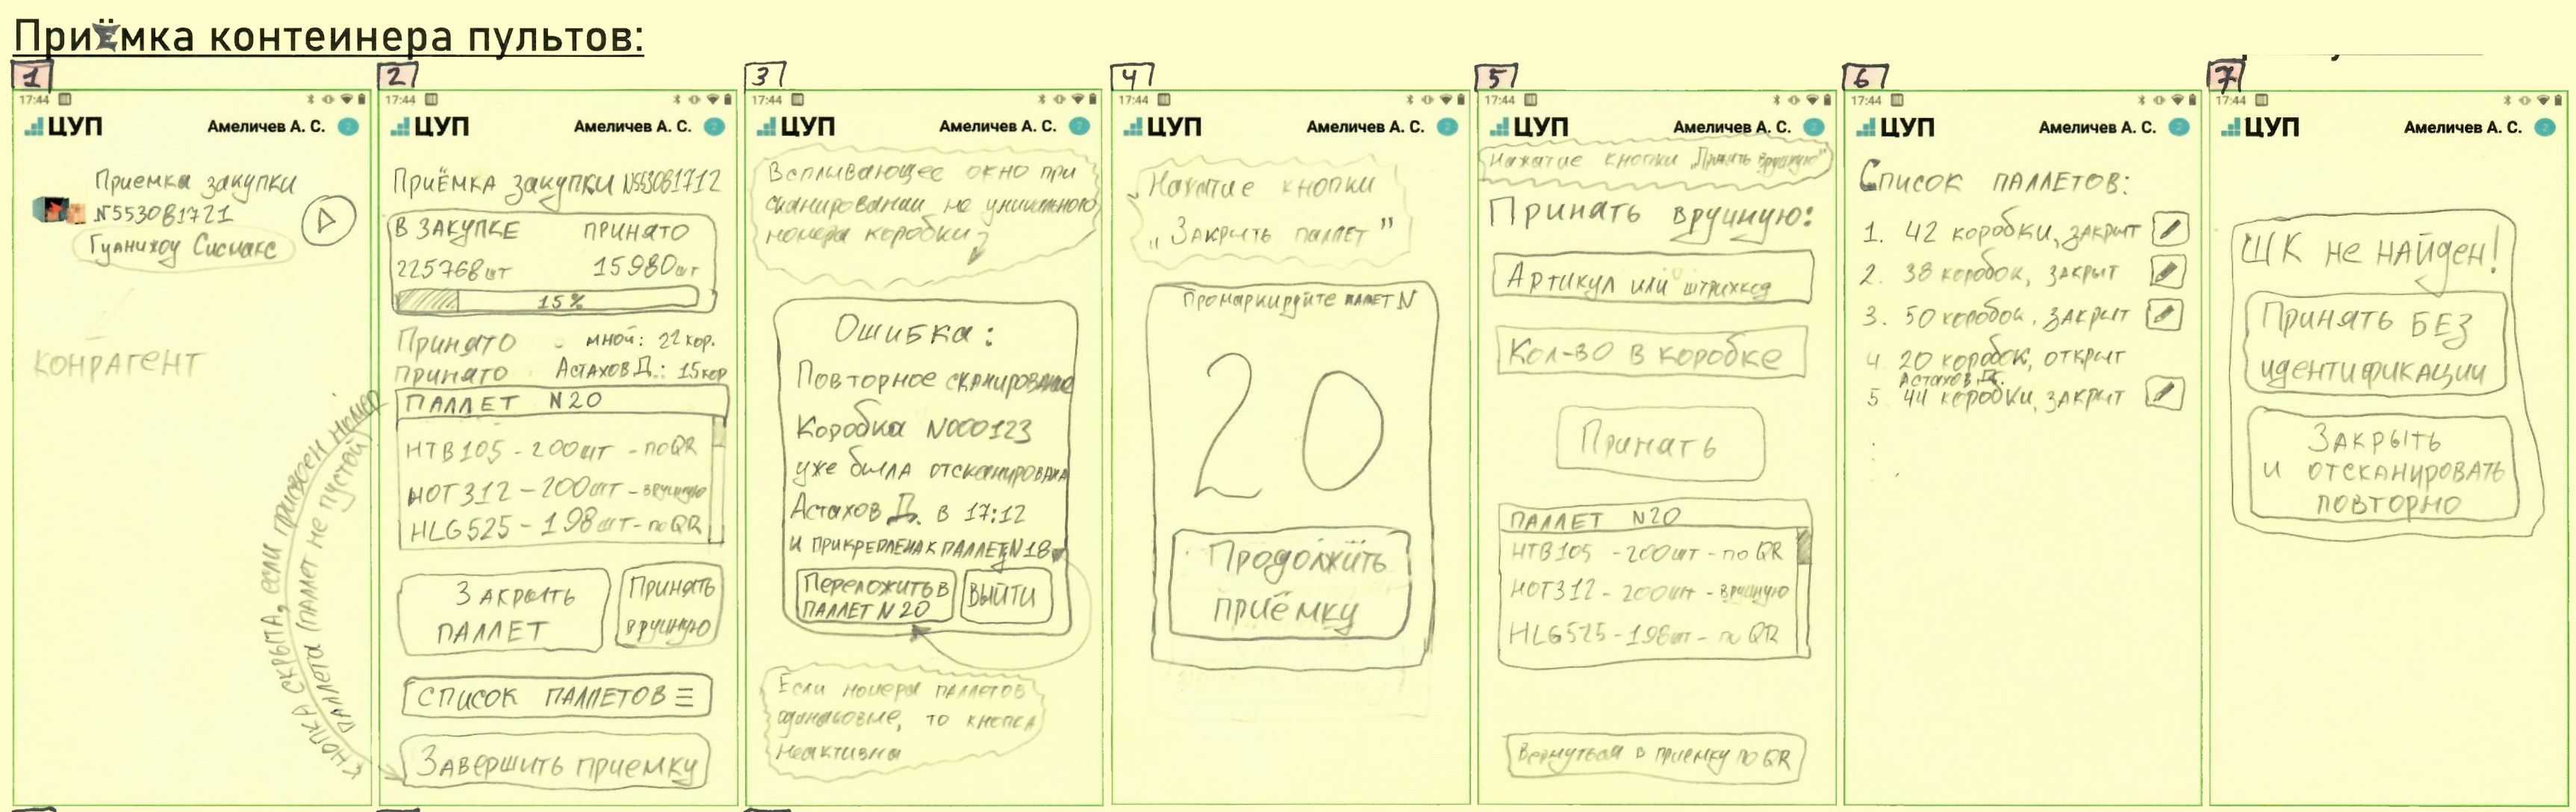 ПриЁмка контеинера пультов:
1
17:44
ЦУП Амеличев А. С. 2
Приемка закупки
№553081721
Гуанчжоу Сисмакс
КОНРАГЕНТ
2
17:44
ЦУП Амеличев А. С. 2
ПРИЁМКА ЗАКУПКИ №553081712
В ЗАКУПКЕ ПРИНЯТО
225768шт 15980шт
15%
Принято мной: 22 кор.
принято Астахов Д.: 15 кор
ПАЛЛЕТ N20
HTB105 - 200шт - по QR
HOT312 - 200шт - вручную
HLG525 - 198шт - по QR
ЗАКРЫТЬ
ПАЛЛЕТ
Принять
вручную
СПИСОК ПАЛЛЕТОВ
ЗАВЕРШИТЬ ПРИЕМКУ
КНОПКА СКРЫТА, если присвоен номер
паллета (паллет не пустой)
3
17:44
ЦУП Амеличев А. С. 2
Всплывающее окно при
сканировании не уникального
номера коробки
Ошибка:
Повторное сканирование
Коробка N000123
уже была отсканирована
Астахов Д. в 17:12
и прикреплена к паллету N18
Переложить в
ПАЛЛЕТ N20
ВЫЙТИ
Если номера паллетов
одинаковые, то кнопка
неактивна
4
17:44
ЦУП Амеличев А. С. 2
Нажатие кнопки
„Закрыть паллет"
Промаркируйте паллет N
20
Продолжить
приёмку
5
17:44
ЦУП Амеличев А. С. 2
Нажатие кнопки „Принять вручную"
Принять вручную:
Артикул или штрихкод
Кол-во в коробке
Принять
ПАЛЛЕТ N20
HTB105 - 200шт - по QR
HOT312 - 200шт - вручную
HLG525 - 198шт - по QR
Вернуться в приемку по QR
6
17:44
ЦУП Амеличев А. С. 2
Список паллетов:
1. 42 коробки, закрыт
2. 38 коробок, закрыт
3. 50 коробок, закрыт
4 20 коробок, открыт
Астахов Д.
5. 44 коробки, закрыт
7
17:44
ЦУП Амеличев А. С. 2
ШК не найден!
Принять БЕЗ
идентификации
Закрыть
и отсканировать
повторно